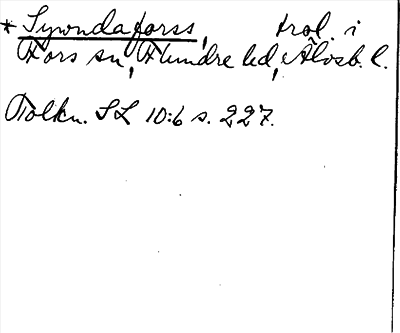 * Sywndaforss, trol. i
Fors sn, Flundre hd, Älvsb. l.
Tolkn. SL 10:6 s. 227.